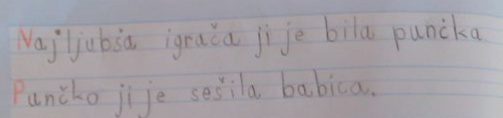 Najljubša igrača ji je bila punčka
Punčko ji je sešila babica.